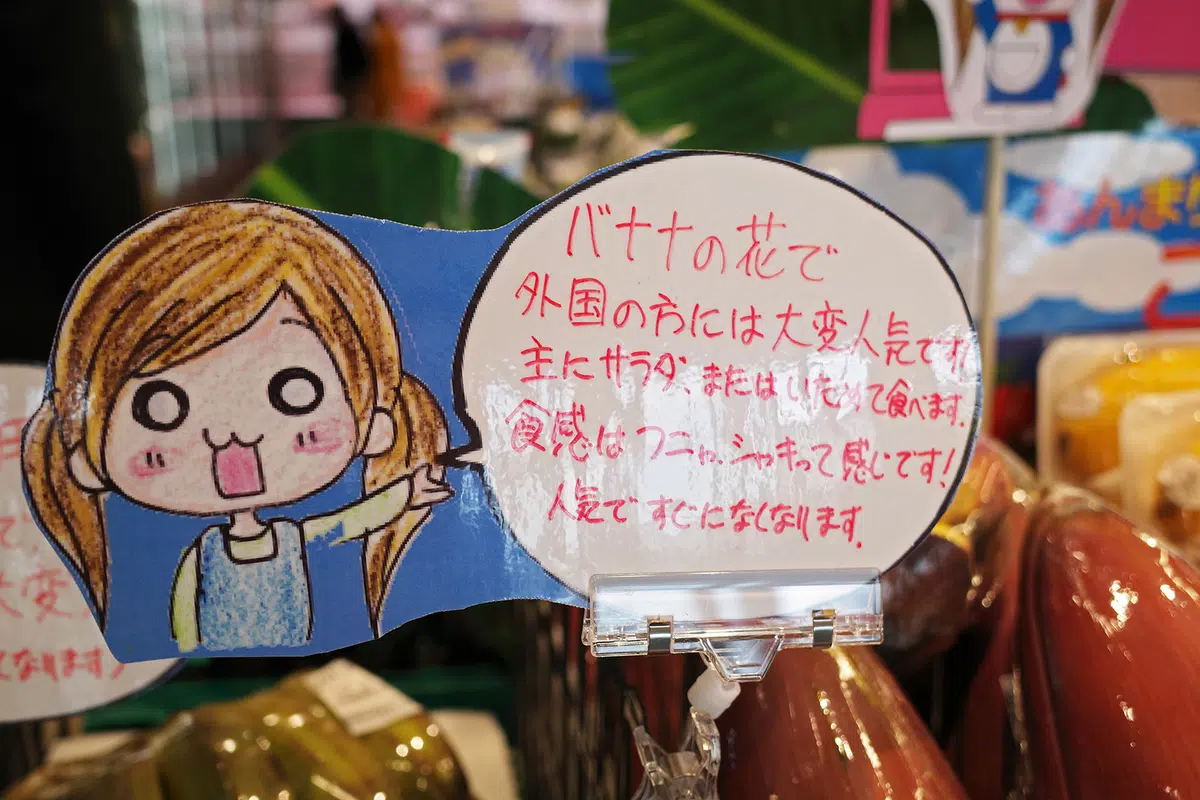 バナナの花で
外国の方には大変人気です!
主にサラダ、またはいためて食べます。
食感はフニャ、シャキって感じです!
人気ですぐになくなります。
大変
くなります